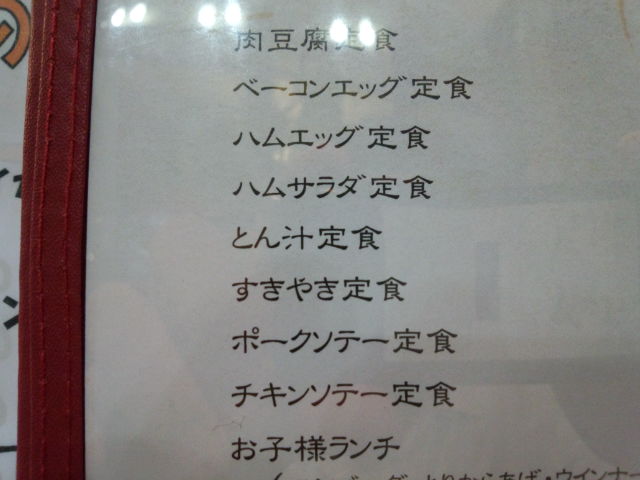 肉豆腐定食
ベーコンエッグ定食
ハムエッグ定食
ハムサラダ定食
とん汁定食
すきやき定食
ポークソテー定食
チキンソテー定食
お子様ランチ